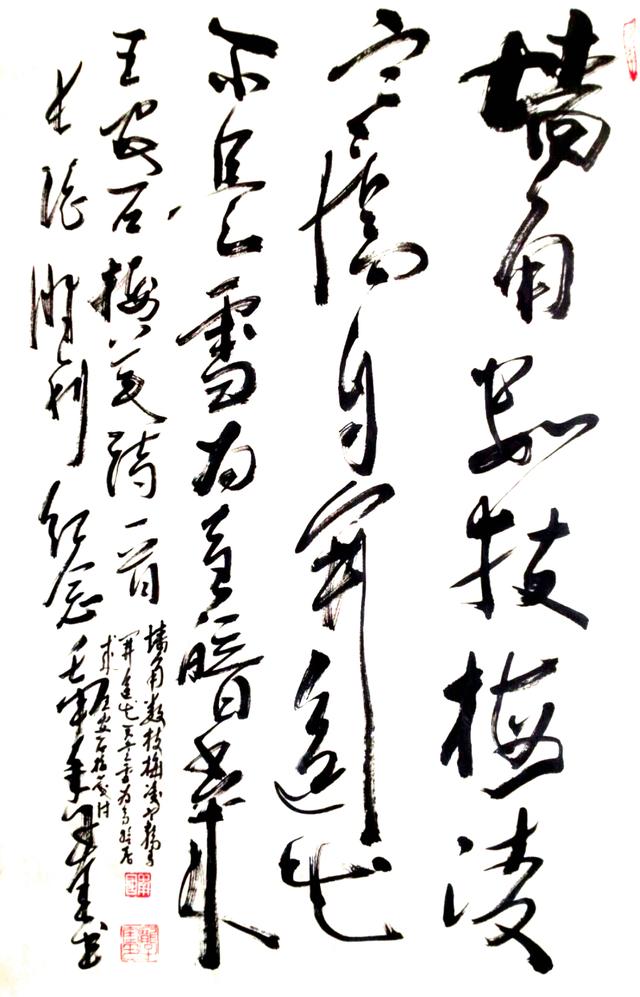 墙角数枝梅凌
寒独自开遥知
不是雪为有暗香来
王安石梅花诗一首
纪念壬申年
墙角数枝梅凌寒独自
开遥知不是雪为有暗香
来王安石梅花诗